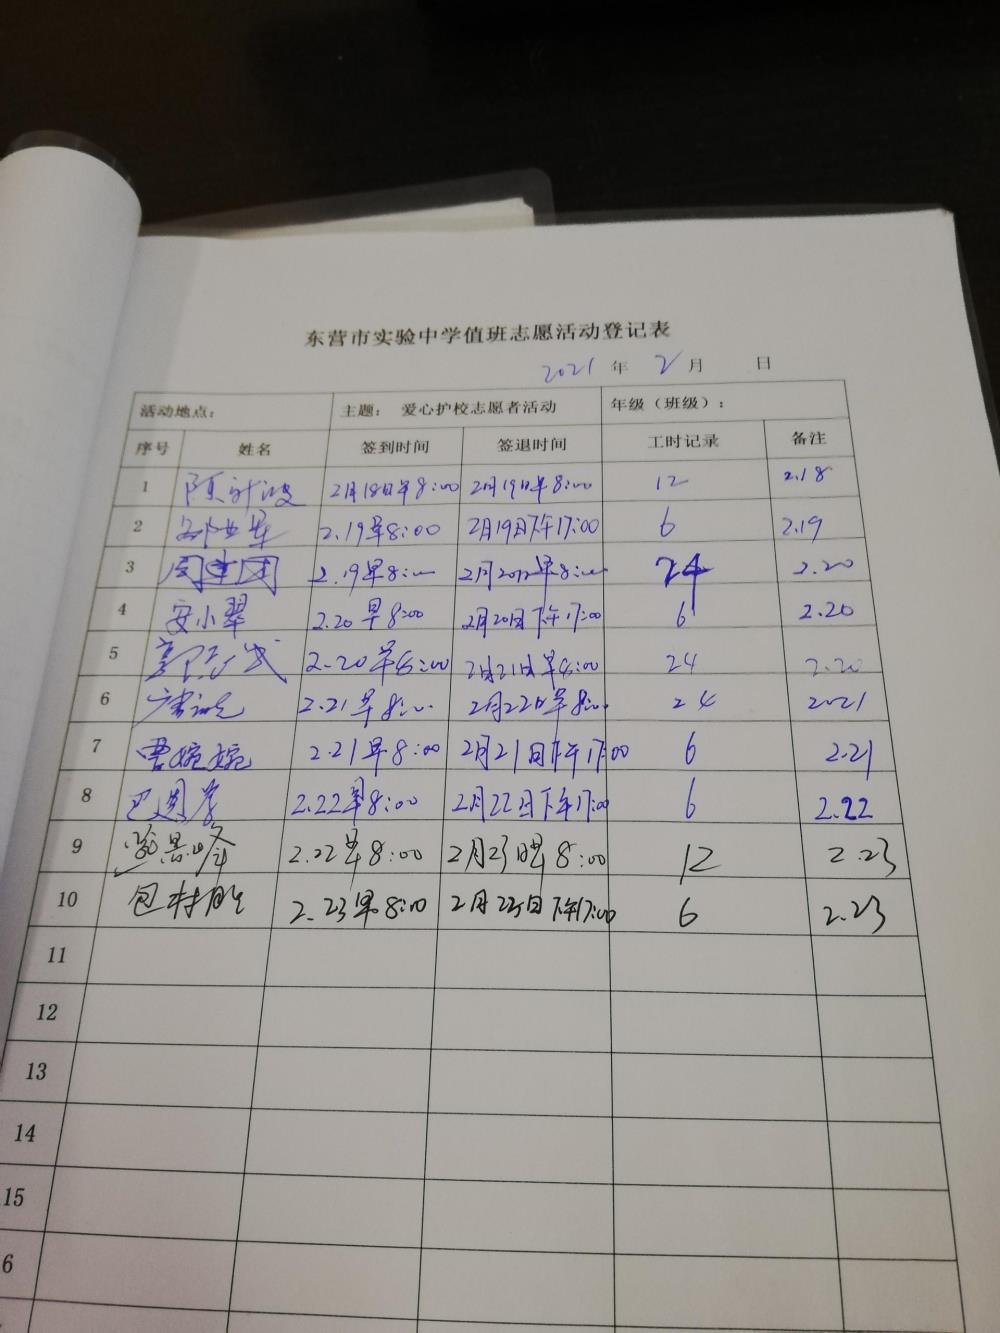 东营市实验中学值班志愿活动登记表
2021 年 2 月 日
活动地点： 主题： 爱心护校志愿者活动 年级（班级）：
序号 姓名 签到时间 签退时间 工时记录 备注
1 2月18日早8:00 2月19日早8:00 12 2.18
2 2.19早8:00 2月19日下午17:00 6 2.19
3 2.19早8:00 24 2.20
4 安小翠 2.20早8:00 2月20日下午17:00 6 2.20
5 24 2.20
6 2.21早8:00 2月22日早8:00 24 2021
7 曹婉婉 2.21早8:00 2月21日下午17:00 6 2.21
8 2.22早8:00 2月22日下午17:00 6 2.22
9 2.22早8:00 2月23日早8:00 12 2.23
10 2.23早8:00 下午17:00 6 2.23
11
12
13
14
15
6